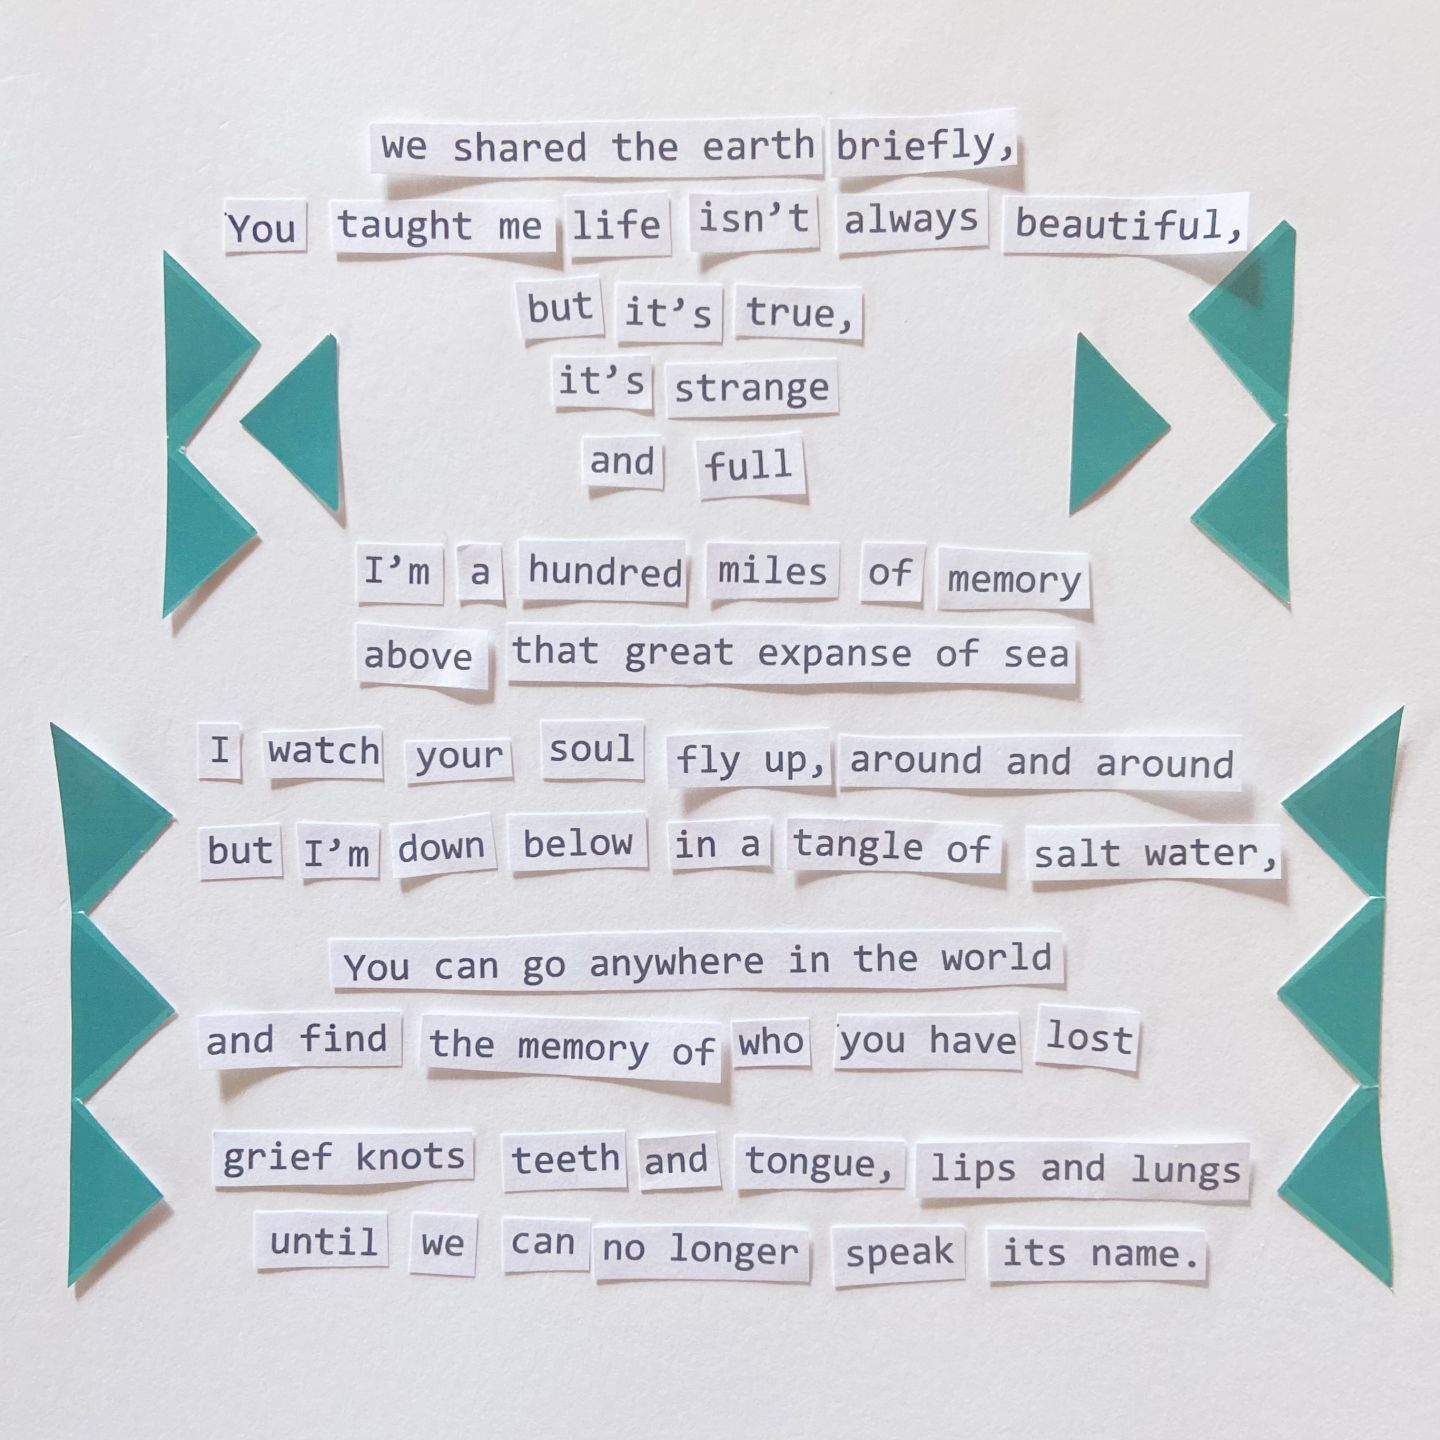 we shared the earth briefly,
You taught me life isn't always beautiful,
but it's true,
it's strange
and full
I'm a hundred miles of memory
above that great expanse of sea
I watch your soul fly up, around and around
but I'm down below in a tangle of salt water,
You can go anywhere in the world
and find the memory of who you have lost
grief knots teeth and tongue, lips and lungs
until we can no longer speak its name.